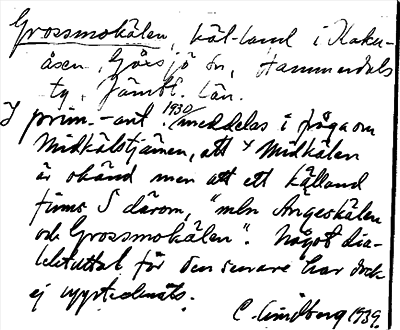 Grossmokälen, käl-land i Kaku-
åsen, Gåxsjö sn, Hammerdals
tg, Jämtl. län.
I prim.-ant. 1930 meddelas i fråga om
Midkälstjärnen, att x Midkälen
är okänd men att ett källand
finns S därom, "mln Ångeskälen
och Grossmokälen". Något dia-
lektuttal för den senare har dock
ej upptecknats.
C. Lindberg 1939.